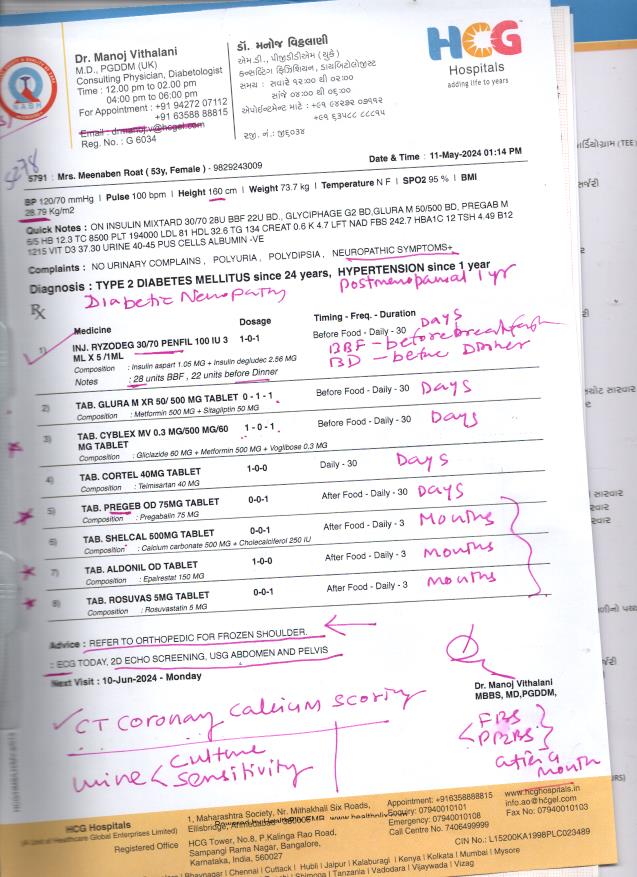 Dr. Manoj Vithalani
M.D., PGDDM (UK)
Consulting Physician, Diabetologist
Time : 12.00 pm to 02.00 pm
04:00 pm to 06:00 pm
For Appointment : +91 94272 07112
+91 63588 88815
Email : dr.manoj.v@hcgel.com
Reg. No. : G 6034
ડૉ. મનોજ વિઠ્ઠલાણી
એમ.ડી., પીજીડીડીએમ (યુકે)
કન્સલ્ટિંગ ફિઝિશિયન, ડાયાબિટોલોજીસ્ટ
સમય : સવારે ૧૨:૦૦ થી ૦૨:૦૦
સાંજે ૦૪:૦૦ થી ૦૬:૦૦
એપોઇન્ટમેન્ટ માટે : +૯૧ ૯૪૨૭૨ ૦૭૧૧૨
+૯૧ ૬૩૫૮૮ ૮૮૮૧૫
રજી. નં. : જી૬૦૩૪
HCG
Hospitals
adding life to years
5278
5791 : Mrs. Meenaben Roat ( 53y, Female ) - 9829243009
Date & Time : 11-May-2024 01:14 PM
BP 120/70 mmHg | Pulse 100 bpm | Height 160 cm | Weight 73.7 kg | Temperature N F | SPO2 95 % | BMI
28.79 Kg/m2
Quick Notes : ON INSULIN MIXTARD 30/70 28U BBF 22U BD., GLYCIPHAGE G2 BD,GLURA M 50/500 BD, PREGAB M
6/5 HB 12.3 TC 8500 PLT 194000 LDL 81 HDL 32.6 TG 134 CREAT 0.6 K 4.7 LFT NAD FBS 242.7 HBA1C 12 TSH 4.49 B12
1215 VIT D3 37.30 URINE 40-45 PUS CELLS ALBUMIN -VE
Complaints : NO URINARY COMPLAINS , POLYURIA , POLYDIPSIA , NEUROPATHIC SYMPTOMS+
Diagnosis : TYPE 2 DIABETES MELLITUS since 24 years, HYPERTENSION since 1 year
Diabetic Neuropathy
Postmenopausal 1 yr
Rx
Medicine Dosage Timing - Freq. - Duration
1) INJ. RYZODEG 30/70 PENFIL 100 IU 3 1-0-1 Before Food - Daily - 30 Days
ML X 5 /1ML
BBF - before breakfast
Composition : Insulin aspart 1.05 MG + Insulin degludec 2.56 MG
BD - before Dinner
Notes : 28 units BBF , 22 units before Dinner
2) TAB. GLURA M XR 50/ 500 MG TABLET 0 - 1 - 1 Before Food - Daily - 30 Days
Composition : Metformin 500 MG + Sitagliptin 50 MG
3) TAB. CYBLEX MV 0.3 MG/500 MG/60 1 - 0 - 1 Before Food - Daily - 30 Days
MG TABLET
Composition : Gliclazide 60 MG + Metformin 500 MG + Voglibose 0.3 MG
4) TAB. CORTEL 40MG TABLET 1-0-0 Daily - 30 Days
Composition : Telmisartan 40 MG
5) TAB. PREGEB OD 75MG TABLET 0-0-1 After Food - Daily - 30 Days
Composition : Pregabalin 75 MG
6) TAB. SHELCAL 500MG TABLET 0-0-1 After Food - Daily - 3 Months
Composition : Calcium carbonate 500 MG + Cholecalciferol 250 IU
7) TAB. ALDONIL OD TABLET 1-0-0 After Food - Daily - 3 months
Composition : Epalrestat 150 MG
8) TAB. ROSUVAS 5MG TABLET 0-0-1 After Food - Daily - 3 months
Composition : Rosuvastatin 5 MG
Advice : REFER TO ORTHOPEDIC FOR FROZEN SHOULDER.
: ECG TODAY, 2D ECHO SCREENING, USG ABDOMEN AND PELVIS
Next Visit : 10-Jun-2024 - Monday
Dr. Manoj Vithalani
MBBS, MD,PGDDM,
CT coronary calcium scoring
urine < Culture
Sensitivity
FBS
PP2BS
after a
month
HCG Hospitals
(A Unit of Healthcare Global Enterprises Limited)
Registered Office
1, Maharashtra Society, Nr. Mithakhali Six Roads,
Ellisbridge, Ahmedabad
HCG Tower, No.8, P.Kalinga Rao Road,
Sampangi Rama Nagar, Bangalore,
Karnataka, India, 560027
Appointment: +916358888815
Enquiry: 07940010101
Emergency: 07940010108
Call Centre No. 7406499999
www.hcghospitals.in
info.ao@hcgel.com
Fax No. 07940010103
CIN No.: L15200KA1998PLC023489
Bhavnagar | Chennai | Cuttack | Hubli | Jaipur | Kalaburagi | Kenya | Kolkata | Mumbai | Mysore
Shimoga | Tanzania | Vadodara | Vijaywada | Vizag